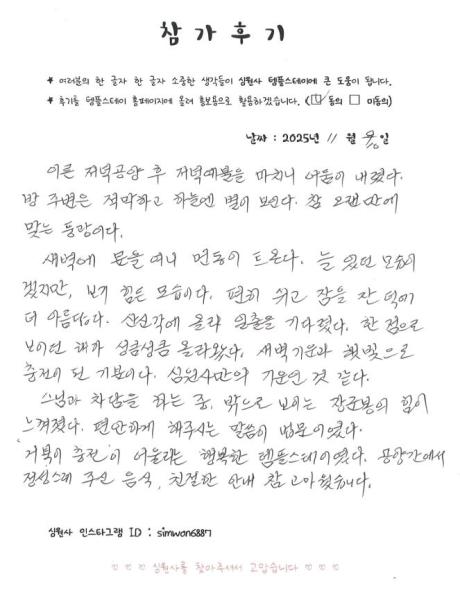 참가후기
* 여러분의 한 글자 한 글자 소중한 생각들이 심원사 템플스테이에 큰 도움이 됩니다.
* 후기를 템플스테이 홈페이지에 올려 홍보용으로 활용하겠습니다. (☑ 동의 □ 미동의)
날짜 : 2025년 11 월 일
이른 저녁공양 후 저녁예불을 마치니 어둠이 내렸다.
방 주변은 적막하고 하늘엔 별이 보인다. 참 오랜만에
맞는 풍광이다.
새벽에 문을 여니 먼동이 트온다. 늘 있던 모습이
겠지만, 보기 힘든 모습이다. 편히 쉬고 잠을 잔 덕에
더 아름답다. 산신각에 올라 일출을 기다렸다. 한 점으로
보이던 해가 성큼성큼 올라왔다. 새벽기운과 햇빛으로
충전이 된 기분이다. 심원사만의 기운인 것 같다.
스님과 차담을 하는 중, 밖으로 보이는 장군봉의 힘이
느껴졌다. 편안하게 해주시는 말씀이 법문이었다.
'거북이 충전'이 어울리는 행복한 템플스테이였다. 공양간에서
정성스레 주신 음식, 친절한 안내 참 고마웠습니다.
심원사 인스타그램 ID : simwon6887
♡ ♡ ♡ 심원사를 찾아주셔서 고맙습니다 ♡ ♡ ♡